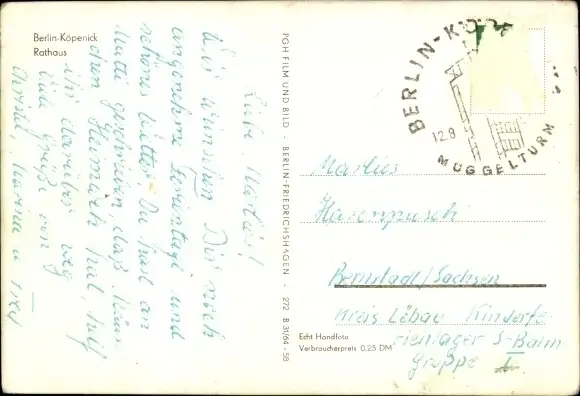 Berlin-Köpenick
Rathaus
Liebe Marlies!
Wir wünschen Dir noch
angenehme Ferientage und
schönes Wetter. Du hast an
Mutti geschrieben, daß
chen Heimweh hat, hilf
ihr darüber weg
Viele Grüße von
Marina u.
PGH FILM UND BILD · BERLIN-FRIEDRICHSHAGEN · 272 B 31/64 - 58
BERLIN-KÖP
12.8
MÜGGELTURM
Marlies
Hasenpusch
Bernstadt/Sachsen
Kreis Löbau Kinderfe-
rienlager S-Bahn
Gruppe I
Echt Handfoto
Verbraucherpreis 0,25 DM